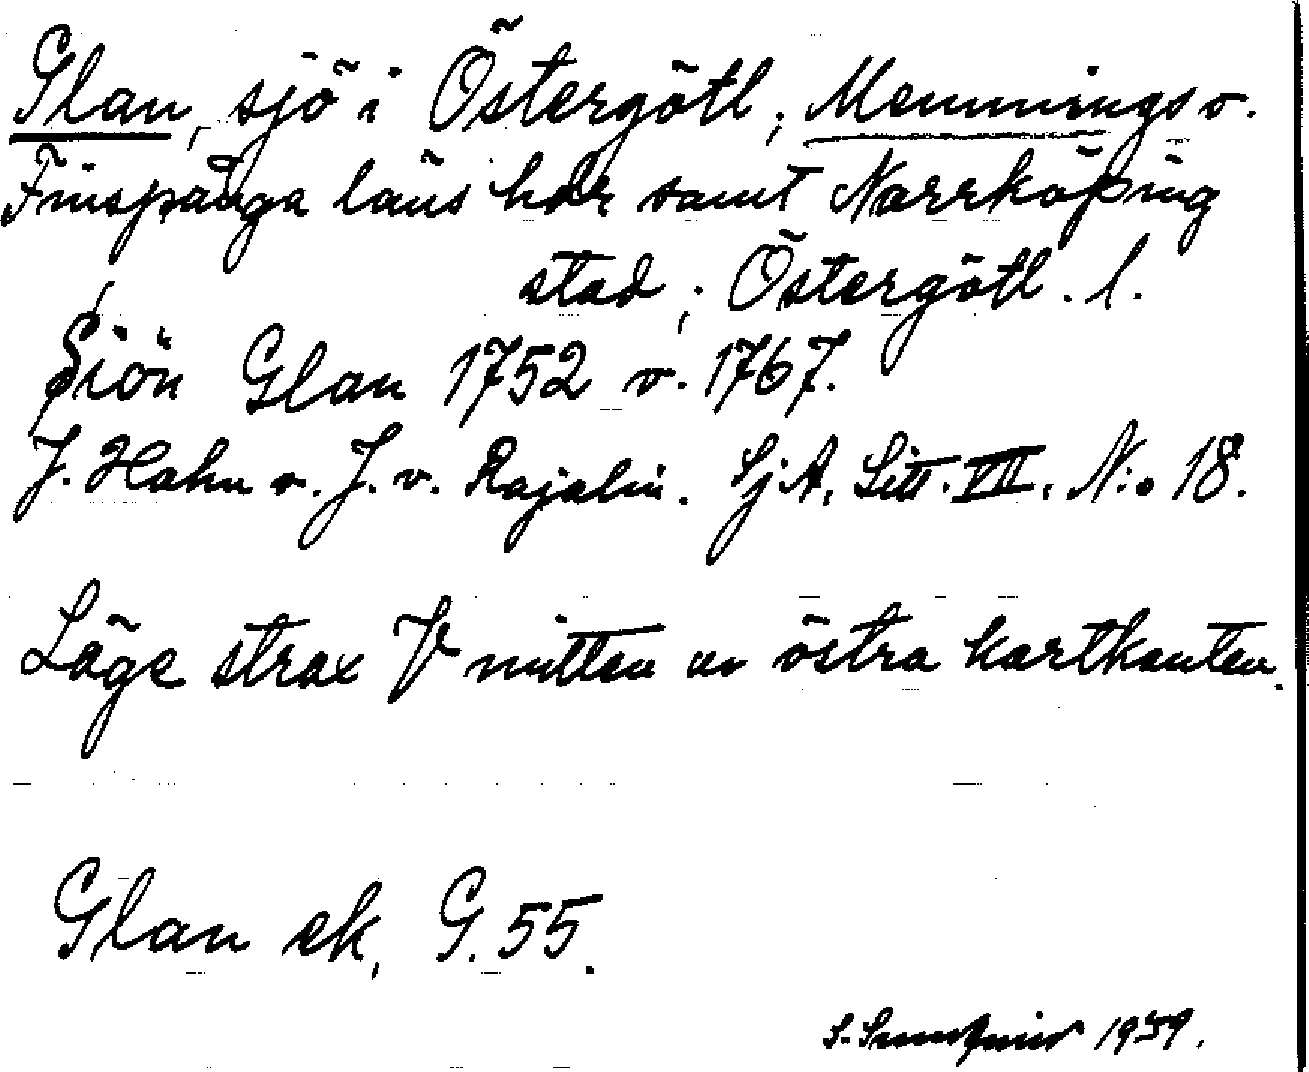 Glan, sjö i Östergötl; Memmings o.
Finspånga läns hdr samt Norrköping
stad; Östergötl. l.
Siön Glan 1752 o. 1767.
J. Hahn o. J. v. Rajalin. SjA, Litt. VII, N:o 18.
Läge strax V mitten av östra kartkanten.
Glan ek, G. 55.
S. 1959.